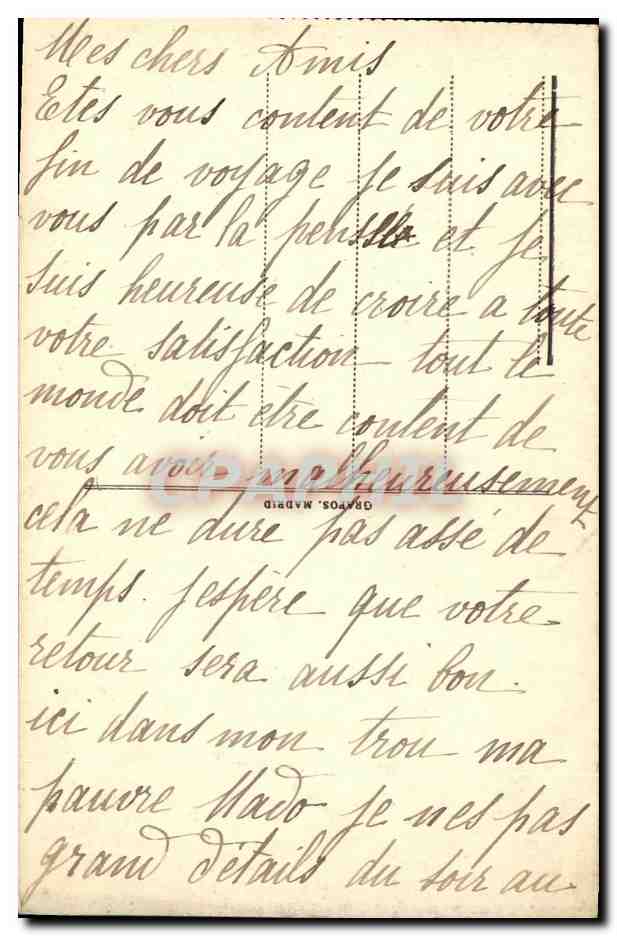 Mes chers Amis
Etes vous content de votre
fin de voyage je suis avec
vous par la pensée et je
suis heureuse de croire a toute
votre satisfaction tout le
monde doit être content de
vous avoir malheureusement
GRAFOS. MADRID
cela ne dure pas assé de
temps. J'espère que votre
retour sera aussi bon.
ici dans mon trou ma
pauvre Mado je n'es pas
grand détails du soir au